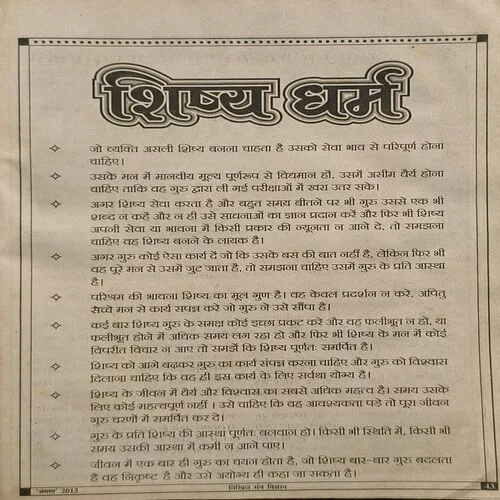 शिष्य धर्म
जो व्यक्ति असली शिष्य बनना चाहता है उसको सेवा भाव से परिपूर्ण होना
चाहिए।
उसके मन में मानवीय मूल्य पूर्णरूप से विद्यमान हों, उसमें असीम धैर्य होना
चाहिए ताकि वह गुरु द्वारा ली गई परीक्षाओं में खरा उतर सके।
अगर शिष्य सेवा करता है और बहुत समय बीतने पर भी गुरु उससे एक भी
शब्द न कहें और न ही उसे साधनाओं का ज्ञान प्रदान करें और फिर भी शिष्य
अपनी सेवा या भावना में किसी प्रकार की न्यूनता न आने दे, तो समझना
चाहिए वह शिष्य बनने के लायक है।
अगर गुरु कोई ऐसा कार्य दें जो कि उसके बस की बात नहीं है, लेकिन फिर भी
वह पूरे मन से उसमें जुट जाता है, तो समझना चाहिए उसमें गुरु के प्रति आस्था
है।
परिश्रम की भावना शिष्य का मूल गुण है। वह केवल प्रदर्शन न करे, अपितु
सच्चे मन से कार्य संपन्न करे जो गुरु ने उसे सौंपा है।
कई बार शिष्य गुरु के समक्ष कोई इच्छा प्रकट करे और वह फलीभूत न हो, या
फलीभूत होने में अधिक समय लग रहा हो और फिर भी शिष्य के मन में कोई
विपरीत विचार न आए तो समझें कि शिष्य पूर्णतः समर्पित है।
शिष्य को आगे बढ़कर गुरु का कार्य संपन्न करना चाहिए और गुरु को विश्वास
दिलाना चाहिए कि वह ही इस कार्य के लिए सर्वथा योग्य है।
शिष्य के जीवन में धैर्य और विश्वास का सबसे अधिक महत्व है। समय उसके
लिए कोई महत्वपूर्ण नहीं । उसे चाहिए कि वह आवश्यकता पड़े तो पूरा जीवन
गुरु चरणों में समर्पित कर दे।
गुरु के प्रति शिष्य की आस्था पूर्णतः बलवान हो। किसी भी स्थिति में, किसी भी
समय उसकी आस्था में कमी न आने पाए।
जीवन में एक बार ही गुरु का चयन होता है, जो शिष्य बार-बार गुरु बदलता
है वह निकृष्ट है और उसे अयोग्य ही कहा जा सकता है।
'अगस्त' 2013
निखिल मंत्र विज्ञान